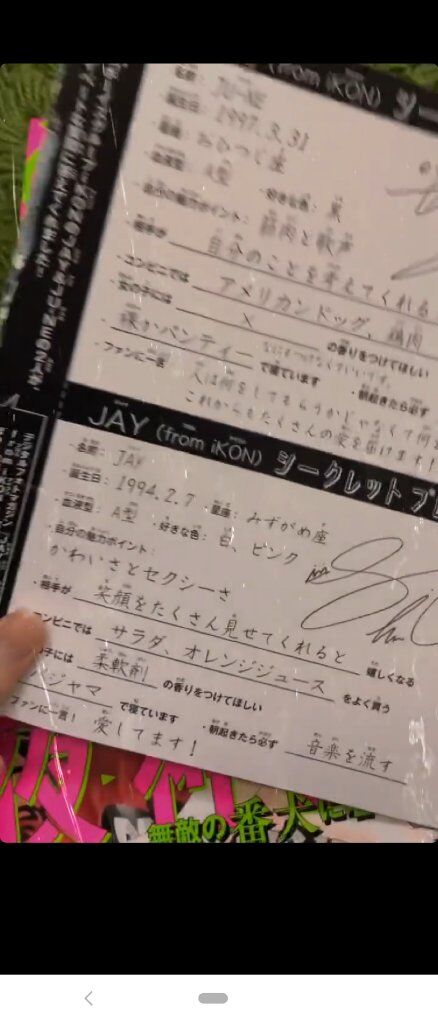 (from iKON) シー
名前： JU-NE
誕生日： 1997.3.31
星座： おひつじ座
血液型： A型 ・好きな色： 黒
・自分の魅力ポイント： 筋肉と歌声
・相手が 自分のことを考えてくれる
・コンビニでは アメリカンドッグ、鶏肉
・女の子には × の香りをつけてほしい
なにもつけなくていいです。
裸かパンティー で寝ています ・朝起きたら必ず
・ファンに一言
これからもたくさんの愛を届けます！
JAY (from iKON) シークレットプ
・名前： JAY
・誕生日： 1994.2.7 ・星座： みずがめ座
・血液型： A型 ・好きな色： 白、ピンク
・自分の魅力ポイント：
かわいさとセクシーさ
・相手が 笑顔をたくさん見せてくれると 嬉しくなる
コンビニでは サラダ、オレンジジュース をよく買う
の子には 柔軟剤 の香りをつけてほしい
ジャマ で寝ています ・朝起きたら必ず 音楽を流す
ファンに一言！ 愛してます！
無敵の番犬